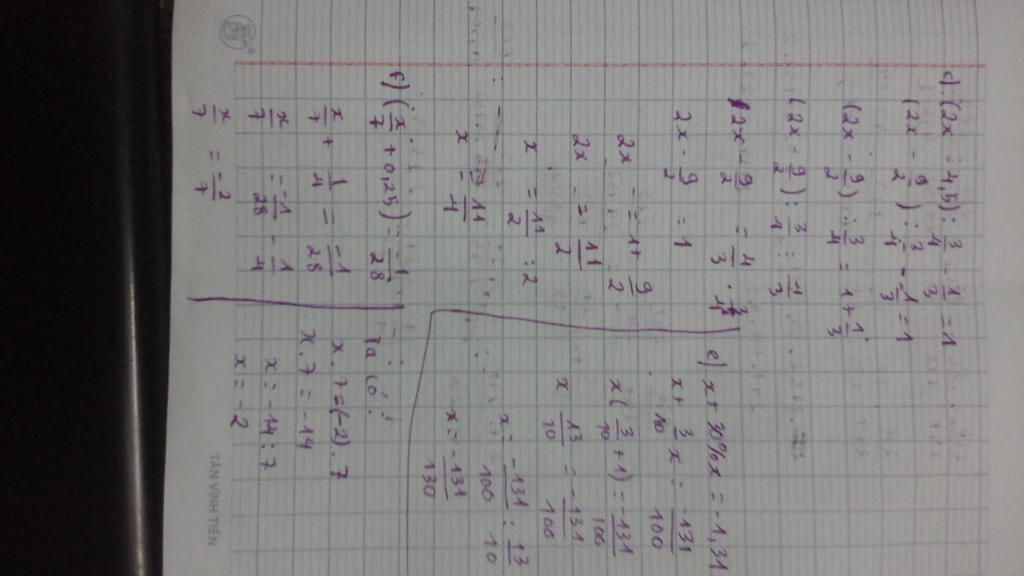 c) (2x - 4,5) : 3/4 - 1/3 = 1
(2x - 9/2) : 3/4 - 1/3 = 1
(2x - 9/2) : 3/4 = 1 + 1/3
(2x - 9/2) : 3/4 = 4/3
2x - 9/2 = 4/3 . 3/4
2x - 9/2 = 1
2x = 1 + 9/2
2x = 11/2
x = 11/2 : 2
x = 11/4
e) x + 30%x = -1,31
x + 3/10 x = -131/100
x (3/10 + 1) = -131/100
x 13/10 = -131/100
x = -131/100 : 13/10
x = -131/130
f) (x/7 + 0,25) = -1/28
x/7 + 1/4 = -1/28
x/7 = -1/28 - 1/4
x/7 = -2/7
Ta có:
x . 7 = (-2) . 7
x . 7 = -14
x = -14 : 7
x = -2
TÂN VĨNH TIẾN